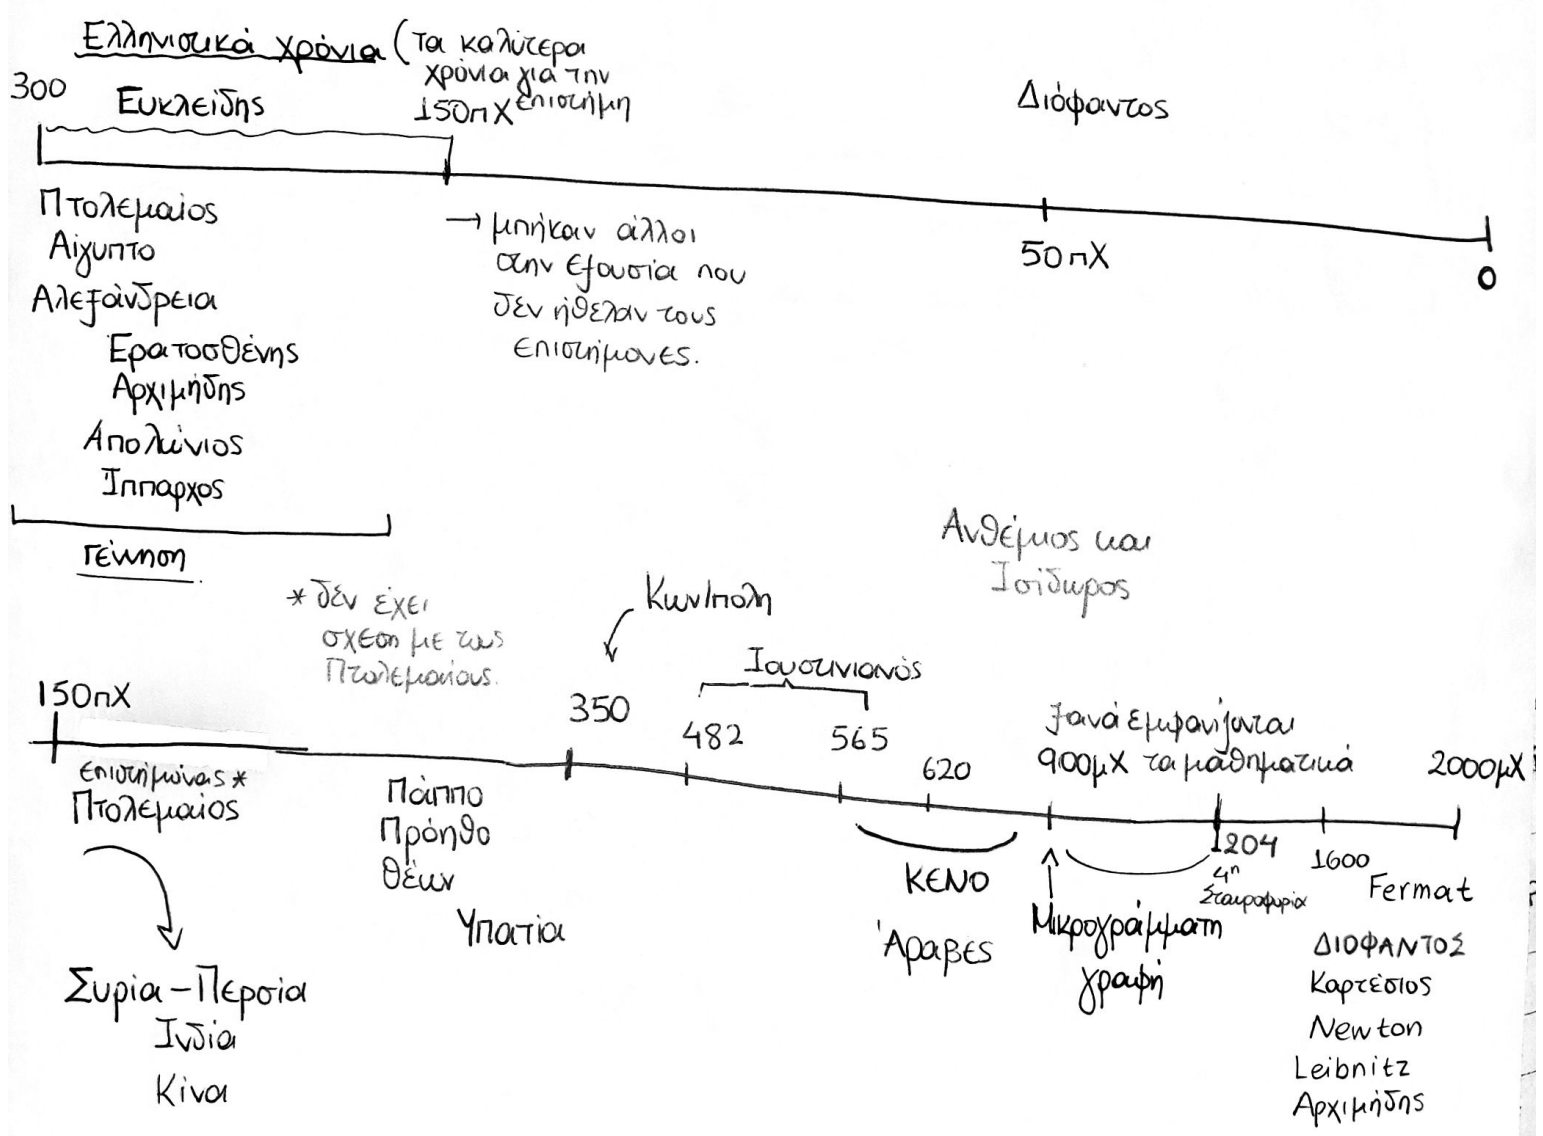 Ελληνιστικά χρόνια (τα καλύτερα
χρόνια για την
επιστήμη
300
Ευκλείδης
150πΧ
Διόφαντος
Πτολεμαίος
Αίγυπτο
Αλεξάνδρεια
Ερατοσθένης
Αρχιμήδης
Απολώνιος
Ίππαρχος
Γέννηση
→ μπήκαν άλλοι
στην εξουσία που
δεν ήθελαν τους
επιστήμονες.
50πΧ
0
* δεν έχει
σχεση με τους
Πτολεμαίους.
Κων/πολη
Ανθέμιος και
Ισίδωρος
Ιουστινιανός
150πΧ
350
482
565
620
ξανά εμφανίζονται
900μΧ τα μαθηματικά
2000μΧ
επιστήμονας *
Πτολεμαίος
Συρία - Περσία
Ινδία
Κίνα
Πάππο
Θέων
Υπατία
ΚΕΝΟ
Άραβες
Μικρογράμματη
γραφή
1204
4η
Σταυροφορία
1600
Fermat
ΔΙΟΦΑΝΤΟΣ
Καρτέσιος
Newton
Leibnitz
Αρχιμήδης